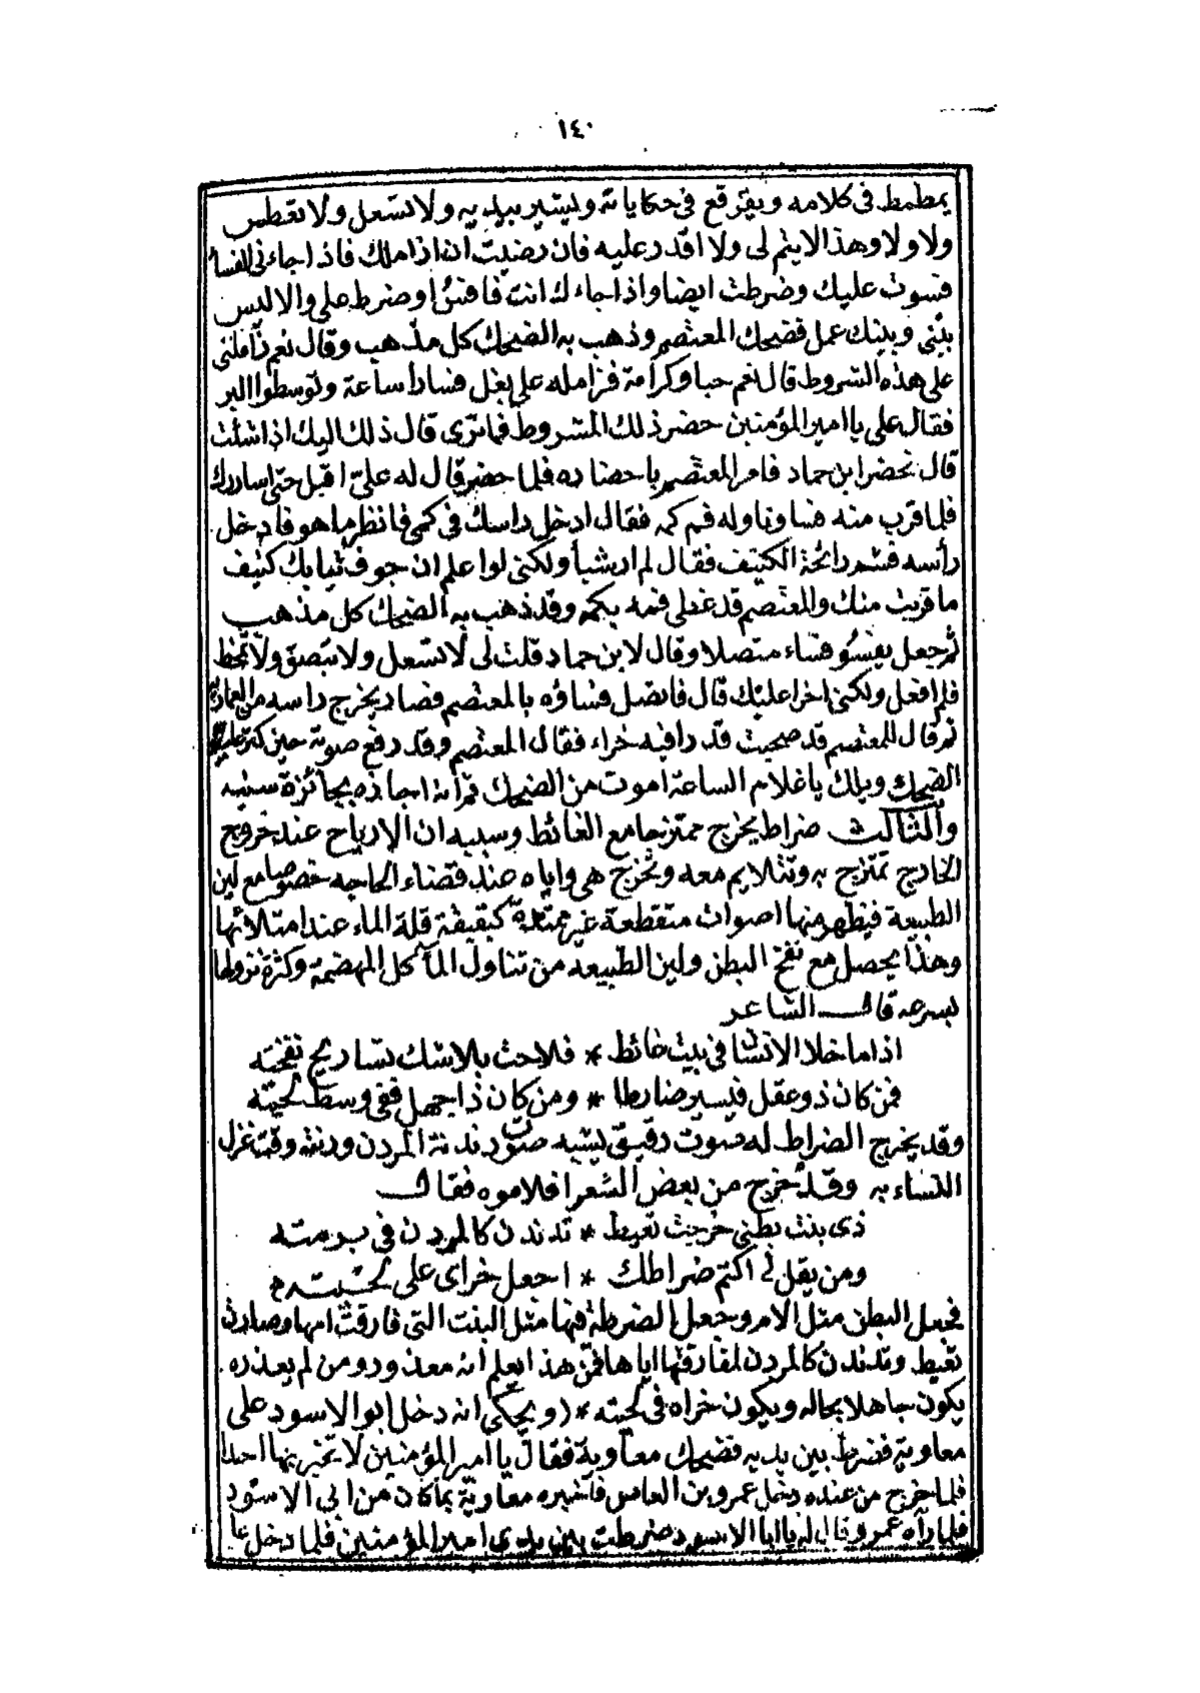 ١٤٠
يمطمط فى كلامه ويفرقع فى حكاياته ويشير بيديه ولا تسعل ولا تعطس
ولا ولا وهذا لا يتم لى ولا اقدر عليه فان رضيت ان ازاملك فاذا جاءنى الفسا
فسوت عليك وضرطت ايضا واذا جاءك انت فافس او ضرط على والا ليس
بينى وبينك عمل فضحك المعتصم وذهب به الضحك كل مذهب وقال نعم زاملنى
على هذه الشروط قال نعم حبا وكرامة فزامله على بغل فسارا ساعة وتوسطوا البر
فقال على يا امير المؤمنين حضر ذلك المشروط فما ترى قال ذلك اليك اذا شئت
قال تحضر ابن حماد فامر المعتصم باحضاره فلما حضر قال له على اقبل حتى اساررك
فلما قرب منه فسا وناوله فم كمه فقال ادخل راسك فى كمى فانظر ما هو فادخل
رأسه فشم رائحة الكنيف فقال لم ار شيأ ولكنى لو اعلم ان جوف ثيابك كنيف
ما قربت منك والمعتصم قد غطى فمه بكمه وقد ذهب به الضحك كل مذهب
ثم جعل يفسو فساء متصلا وقال لابن حماد قلت لى لا تسعل ولا تبصق ولا تمخط
فلم افعل ولكنى اخرا عليك قال فاتصل فساؤه بالمعتصم فصار يخرج راسه من العمارية
ثم قال للمعتصم قد صحيت قد رافيه خراء فقال المعتصم وقد رفع صوته حين كثر عليه
الضحك ويلك يا غلام الساعة اموت من الضحك ثم انه اجازه بجائزة سنيه
والثالث ضراط يخرج ممتزجا مع الغائط وسببه ان الارياح عند خروج
الخارج تمتزج به وتتلايم معه وتخرج هى واياه عند قضاء الحاجه خصوصا مع لين
الطبيعة فيظهر منها اصوات متقطعة غير ممتدة كبقبقة قلة الماء عند امتلائها
وهذا يحصل مع نفخ البطن ولين الطبيعه من تناول المآكل المهضمة وكثرة نزولها
بسرعه قال الشاعر
اذا ما خلا الانسان فى بيت غائط * فلاحت بلا شك تساريح نفخته
فمن كان ذو عقل فيسير ضارطا * ومن كان ذا جهل ففى وسط لحيته
وقد يخرج الضراط له صوت رقيق يشبه صوت دندنة المردن ورنته وقت غزل
النساء به وقد تخرج من بعض الشعرا فلاموه فقال
ذى بنت بطنى خرجت تعيط * تدندن كالمردن فى برمته
ومن يقل لى اكتم ضراطك * اجعل خراى على لحيته
فجعل البطن مثل الام وجعل الضرطة فيها مثل البنت التى فارقت امها وصارت
تعيط وتدندن كالمردن لمفارقتها اياها فمن هذا يعلم انه معذور ومن لم يعذره
يكون جاهلا بحاله ويكون خراه فى لحيته * (ويحكى انه دخل ابو الاسود على
معاوية فضرط بين يديه فضحك معاوية فقال يا امير المؤمنين لا تخبر بها احدا
فلما خرج من عنده دخل عمرو بن العاص فاخبره معاوية بما كان من ابى الاسود
فلما رآه عمرو قال له يا ابا الاسود ضرطت بين يدى امير المؤمنين فلما دخل على